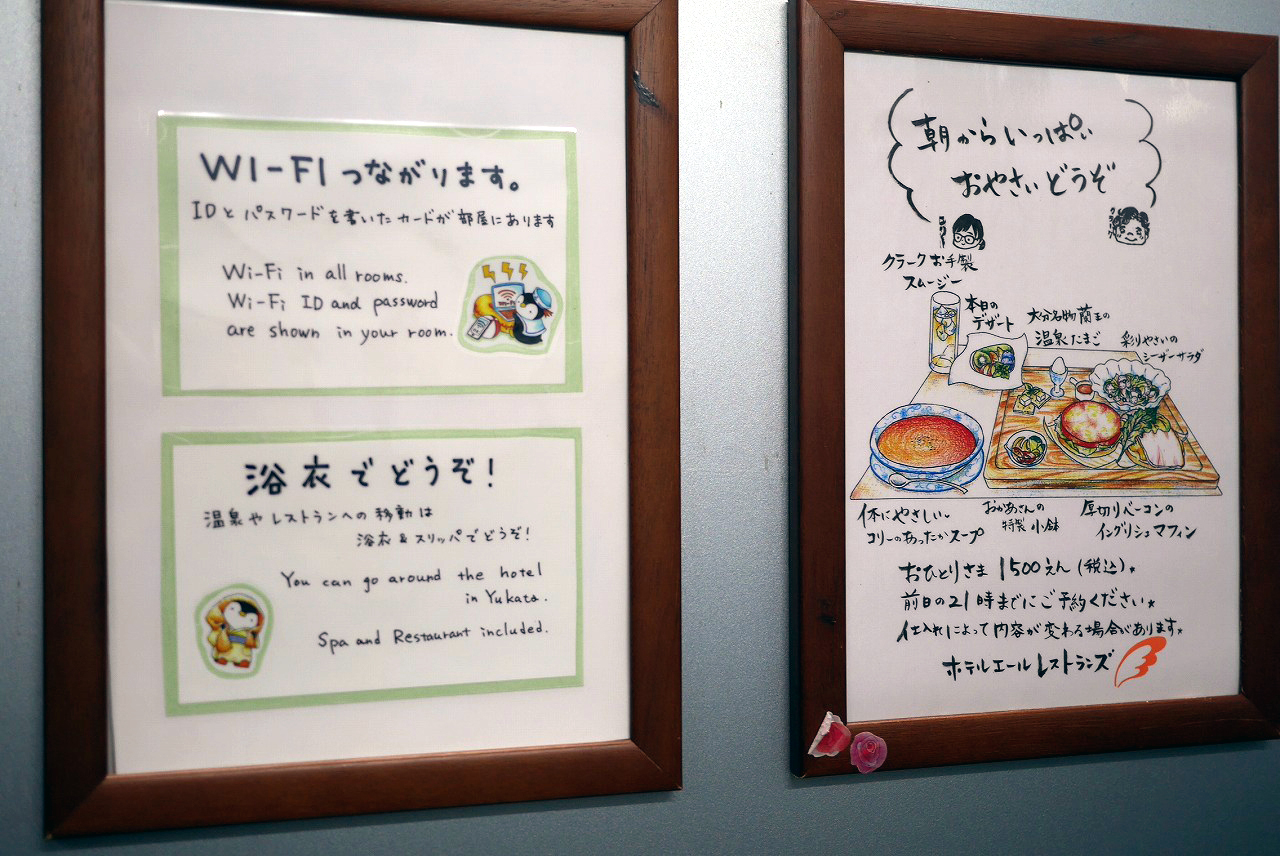 WI-FI つながります。
IDと パスワードを書いたカードが部屋にあります
Wi-Fi in all rooms.
Wi-Fi ID and password
are shown in your room.
浴衣でどうぞ!
温泉やレストランへの移動は
浴衣&スリッパでどうぞ!
You can go around the hotel
in Yukata.
Spa and Restaurant included.
朝からいっぱい
おやさいどうぞ
クラークお手製
スムージー
本日の
デザート
大分名物蘭王の
温泉たまご
彩りやさいの
シーザーサラダ
体にやさしい。
コリーのあったかスープ
おかあさんの
特製 小鉢
厚切りベーコンの
イングリッシュマフィン
おひとりさま 1500えん(税込)★
前日の21時までにご予約ください★
仕入れによって内容が変わる場合があります★
ホテルエール レストランズ